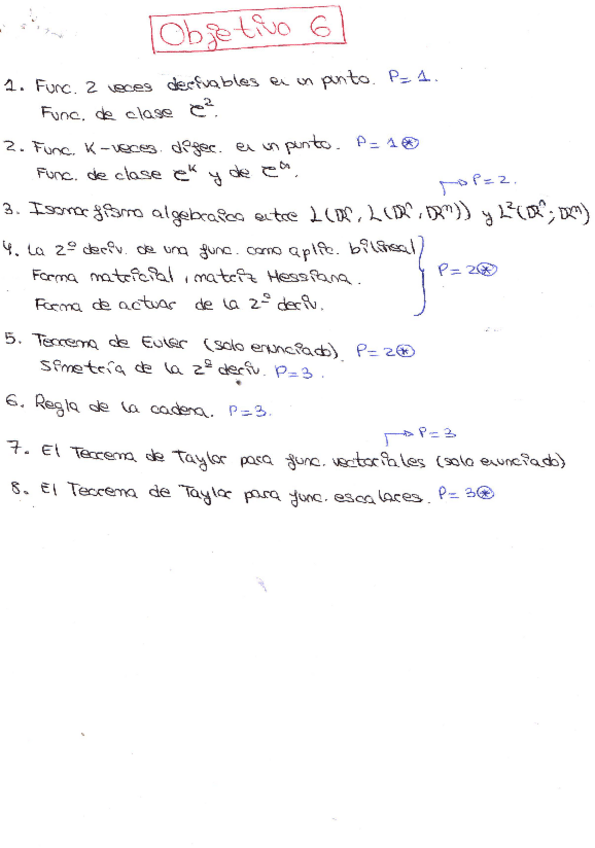 Objetivo 6
1. Func. 2 veces derivables en un punto. P=1.
Func. de clase C².
2. Func. K-veces difer. en un punto. P=1⊛
Func. de clase Cᴷ y de C^∞.
→ P=2.
3. Isomorfismo algebraico entre L(ℝⁿ, L(ℝⁿ, ℝᵐ)) y L²(ℝⁿ; ℝᵐ)
4. La 2ª deriv. de una func. como aplic. bilineal
Forma matricial, matriz Hessiana. P=2⊛
Forma de actuar de la 2ª deriv.
5. Teorema de Euler (solo enunciado). P=2⊛
Simetría de la 2ª deriv. P=3.
6. Regla de la cadena. P=3.
→ P=3
7. El Teorema de Taylor para func. vectoriales (solo enunciado)
8. El Teorema de Taylor para func. escalares. P=3⊛